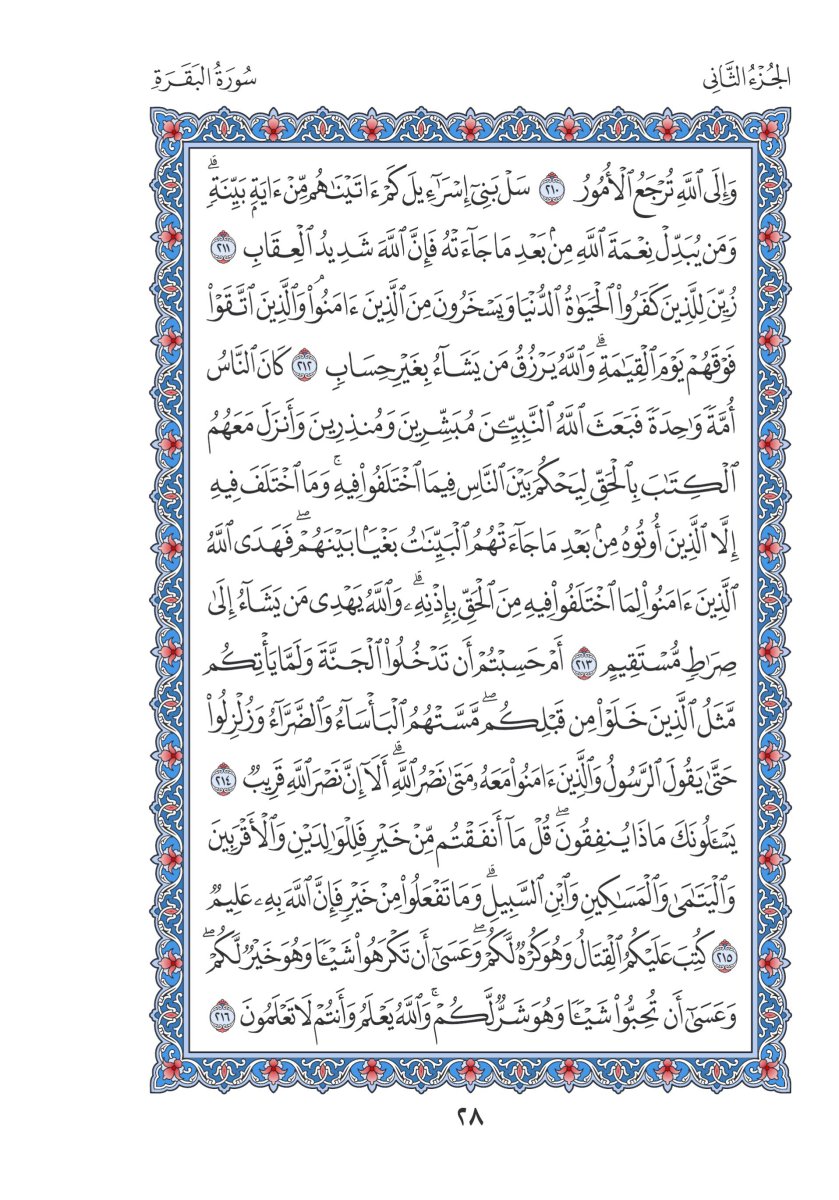 الجُزْءُ الثَّانِى
سُورَةُ البَقَرَةِ
وَإِلَى ٱللَّهِ تُرْجَعُ ٱلْأُمُورُ ٢١٠ سَلْ بَنِىٓ إِسْرَٰٓءِيلَ كَمْ ءَاتَيْنَٰهُم مِّنْ ءَايَةٍۭ بَيِّنَةٍۗ
وَمَن يُبَدِّلْ نِعْمَةَ ٱللَّهِ مِنۢ بَعْدِ مَا جَآءَتْهُ فَإِنَّ ٱللَّهَ شَدِيدُ ٱلْعِقَابِ ٢١١
زُيِّنَ لِلَّذِينَ كَفَرُوا۟ ٱلْحَيَوٰةُ ٱلدُّنْيَا وَيَسْخَرُونَ مِنَ ٱلَّذِينَ ءَامَنُوا۟ۘ وَٱلَّذِينَ ٱتَّقَوْا۟
فَوْقَهُمْ يَوْمَ ٱلْقِيَٰمَةِۗ وَٱللَّهُ يَرْزُقُ مَن يَشَآءُ بِغَيْرِ حِسَابٍ ٢١٢ كَانَ ٱلنَّاسُ
أُمَّةً وَٰحِدَةً فَبَعَثَ ٱللَّهُ ٱلنَّبِيِّـۧنَ مُبَشِّرِينَ وَمُنذِرِينَ وَأَنزَلَ مَعَهُمُ
ٱلْكِتَٰبَ بِٱلْحَقِّ لِيَحْكُمَ بَيْنَ ٱلنَّاسِ فِيمَا ٱخْتَلَفُوا۟ فِيهِۚ وَمَا ٱخْتَلَفَ فِيهِ
إِلَّا ٱلَّذِينَ أُوتُوهُ مِنۢ بَعْدِ مَا جَآءَتْهُمُ ٱلْبَيِّنَٰتُ بَغْيًۢا بَيْنَهُمْۖ فَهَدَى ٱللَّهُ
ٱلَّذِينَ ءَامَنُوا۟ لِمَا ٱخْتَلَفُوا۟ فِيهِ مِنَ ٱلْحَقِّ بِإِذْنِهِۦۗ وَٱللَّهُ يَهْدِى مَن يَشَآءُ إِلَىٰ
صِرَٰطٍ مُّسْتَقِيمٍ ٢١٣ أَمْ حَسِبْتُمْ أَن تَدْخُلُوا۟ ٱلْجَنَّةَ وَلَمَّا يَأْتِكُم
مَّثَلُ ٱلَّذِينَ خَلَوْا۟ مِن قَبْلِكُمۖ مَّسَّتْهُمُ ٱلْبَأْسَآءُ وَٱلضَّرَّآءُ وَزُلْزِلُوا۟
حَتَّىٰ يَقُولَ ٱلرَّسُولُ وَٱلَّذِينَ ءَامَنُوا۟ مَعَهُۥ مَتَىٰ نَصْرُ ٱللَّهِۗ أَلَآ إِنَّ نَصْرَ ٱللَّهِ قَرِيبٌ ٢١٤
يَسْـَٔلُونَكَ مَاذَا يُنفِقُونَۖ قُلْ مَآ أَنفَقْتُم مِّنْ خَيْرٍ فَلِلْوَٰلِدَيْنِ وَٱلْأَقْرَبِينَ
وَٱلْيَتَٰمَىٰ وَٱلْمَسَٰكِينِ وَٱبْنِ ٱلسَّبِيلِۗ وَمَا تَفْعَلُوا۟ مِنْ خَيْرٍ فَإِنَّ ٱللَّهَ بِهِۦ عَلِيمٌ
٢١٥ كُتِبَ عَلَيْكُمُ ٱلْقِتَالُ وَهُوَ كُرْهٌ لَّكُمْۖ وَعَسَىٰٓ أَن تَكْرَهُوا۟ شَيْـًٔا وَهُوَ خَيْرٌ لَّكُمْۖ
وَعَسَىٰٓ أَن تُحِبُّوا۟ شَيْـًٔا وَهُوَ شَرٌّ لَّكُمْۚ وَٱللَّهُ يَعْلَمُ وَأَنتُمْ لَا تَعْلَمُونَ ٢١٦
٢٨